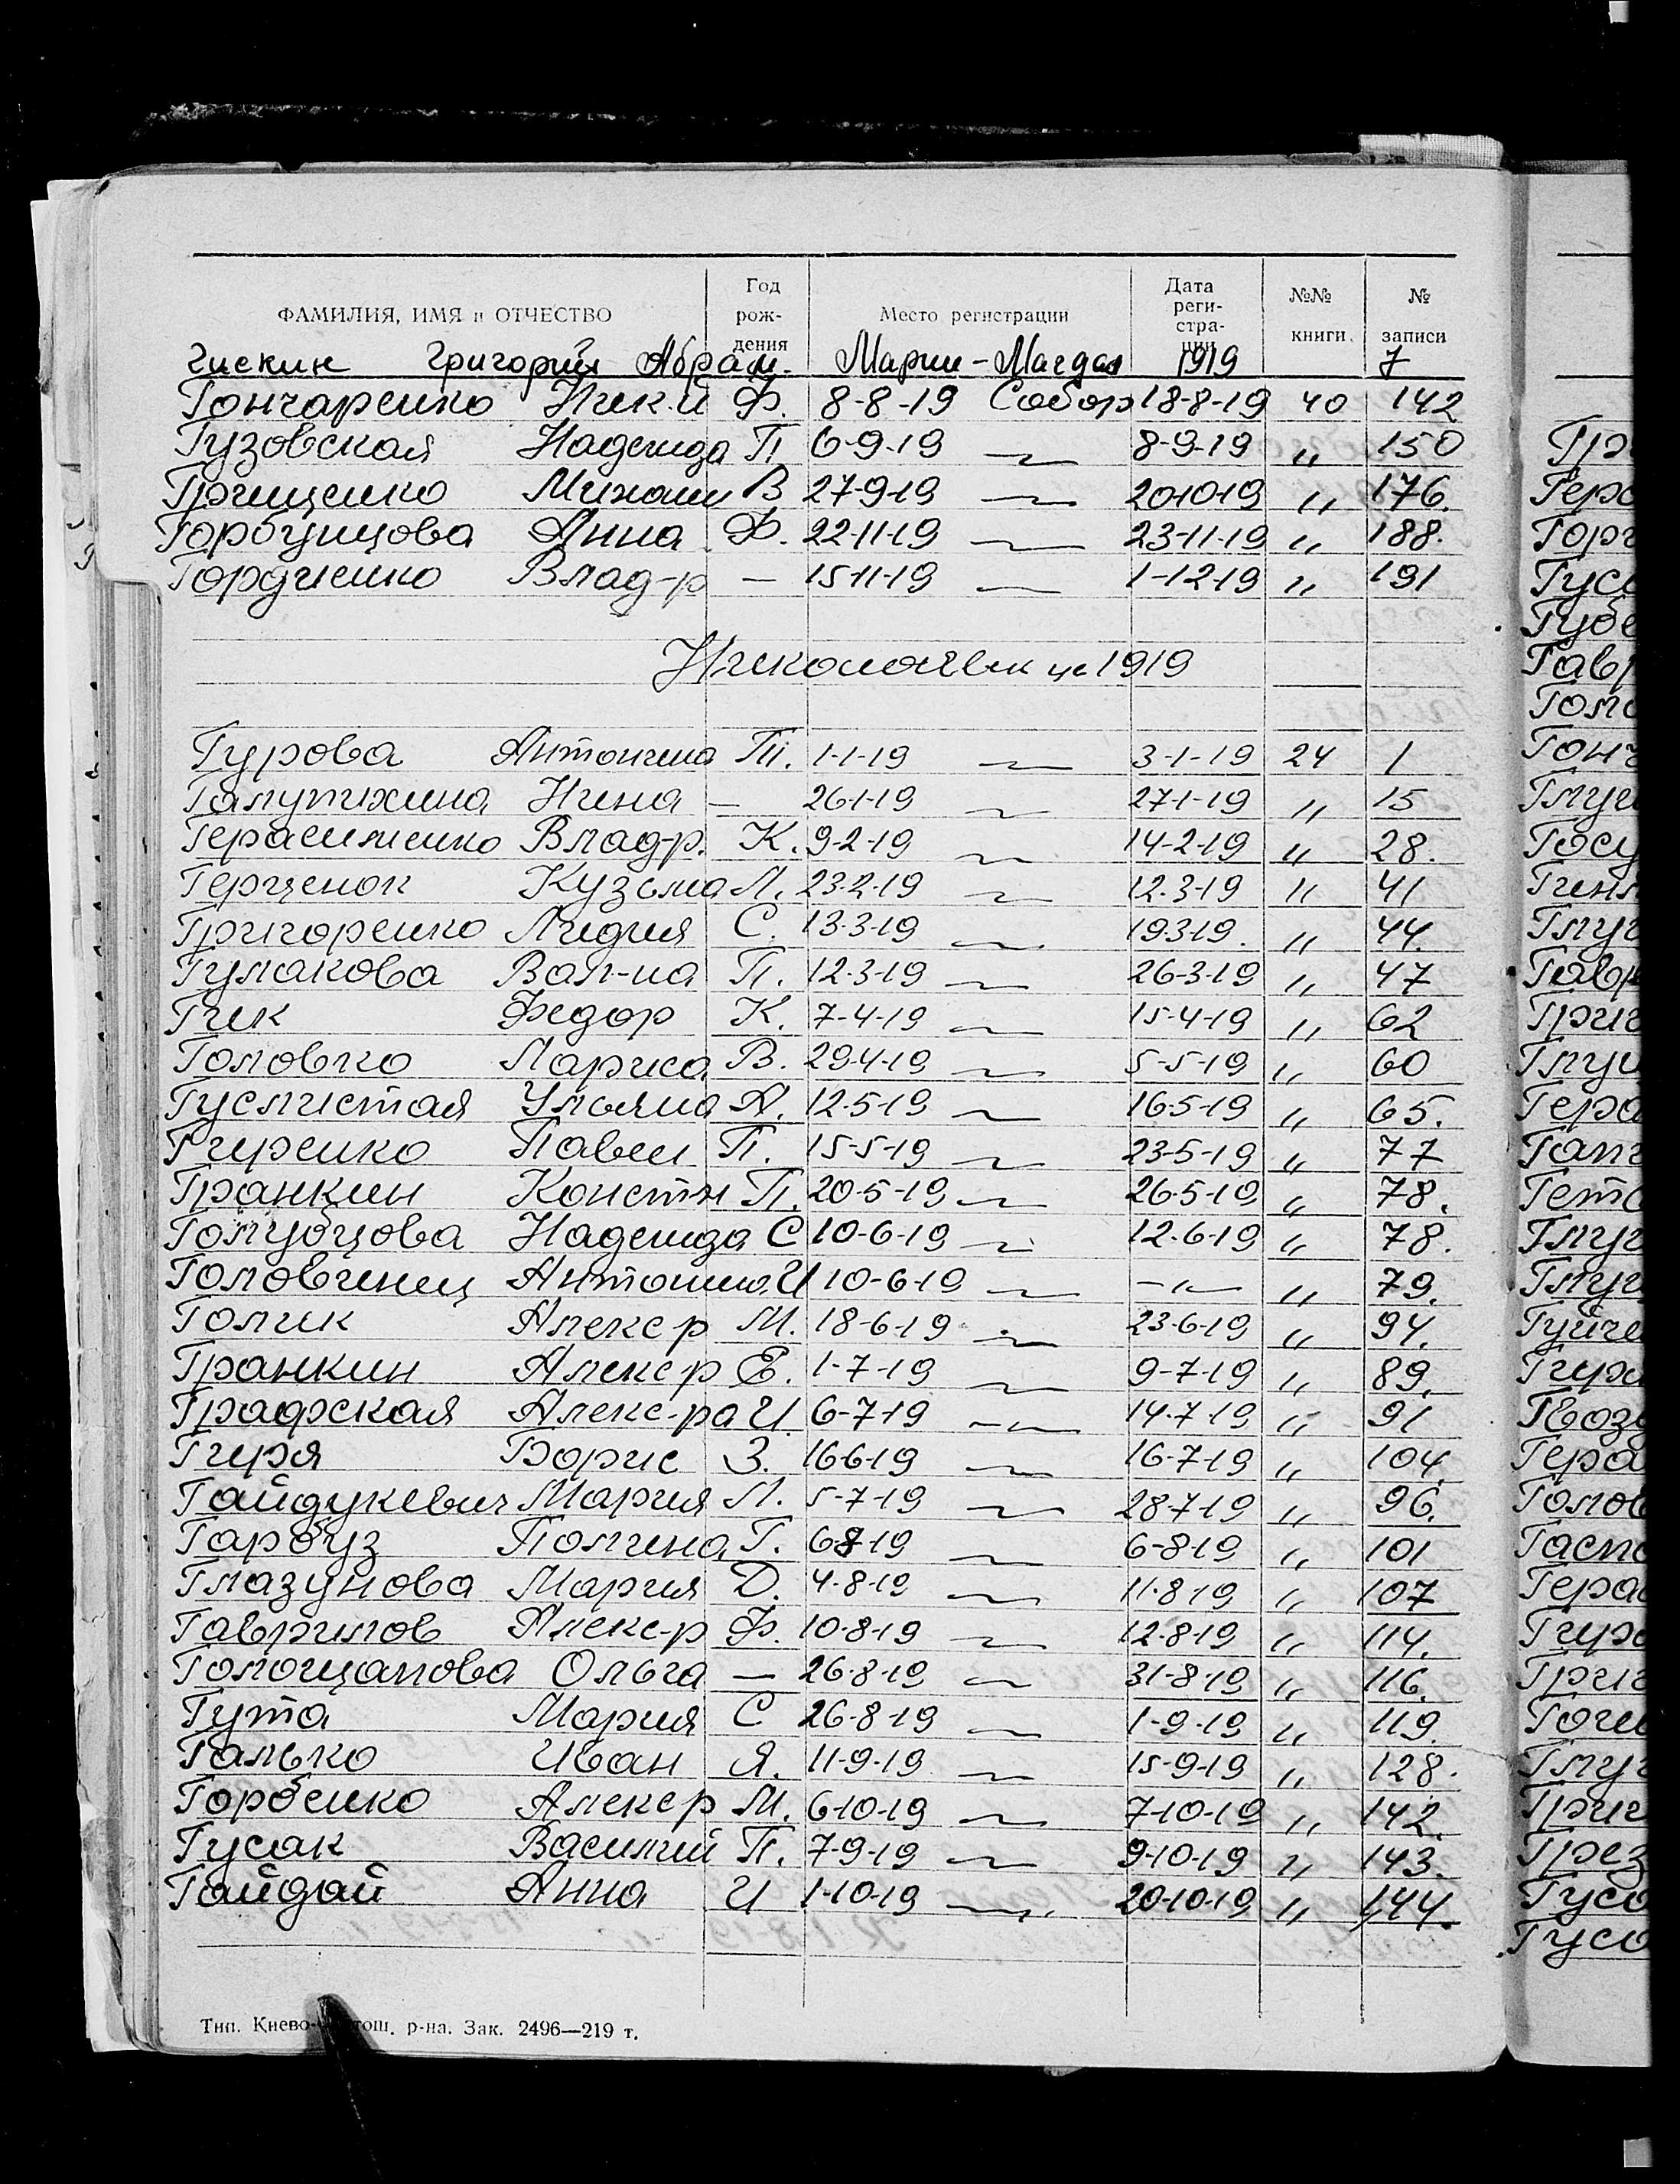 ФАМИЛИЯ, ИМЯ и ОТЧЕСТВО Год рож-дения Место регистрации Дата реги-стра-ции №№ книги № записи
Гискин Григорий Абрам. Марии-Магдал 1919 7
Гончаренко Ф. 8-8-19 Собор 18-8-19 40 142
Гузовская Надежда П. 6-9-19 —〃— 8-9-19 〃 150
Грищенко Михаил В 27-9-19 —〃— 20-10-19 〃 176.
Горбунцова Анна Ф. 22-11-19 —〃— 23-11-19 〃 188.
Гордиенко Влад-р — 15-11-19 —〃— 1-12-19 〃 191
Николаевск ц. 1919
Гурова Антонина Т. 1-1-19 —〃— 3-1-19 24 1
Галушкина Нина — 26-1-19 —〃— 27-1-19 〃 15
Герасименко Влад-р. К. 9-2-19 —〃— 14-2-19 〃 28.
Герценок Кузьма Л. 23-2-19 —〃— 12.3-19 〃 41
Григоренко Лидия С. 13-3-19 —〃— 19-3-19. 〃 44.
Гулакова Вал-на П. 12-3-19 —〃— 26-3-19 〃 47
Гик Федор К. 7-4-19 —〃— 15-4-19 〃 62
Головко Лариса В. 29-4-19 —〃— 5-5-19 〃 60
Гуслистая Ульяна А. 12-5-19 —〃— 16-5-19 〃 65.
Гиренко Павел П. 15-5-19 —〃— 23-5-19 〃 77
Гранкин Констн П. 20-5-19 —〃— 26-5-19 〃 78.
Голубцова Надежда С 10-6-19 —〃— 12.6-19 〃 78.
Головинец Антонина И 10-6-19 —〃— —〃— 〃 79.
Голик Алекср М. 18-6-19 —〃— 23-6-19 〃 94.
Гранкин Алекср Е. 1-7-19 —〃— 9-7-19 〃 89.
Графская Алекс-ра И. 6-7-19 —〃— 14-7-19 〃 91
Гиря Борис З. 16-6-19 —〃— 16-7-19 〃 104.
Гайдукевич Мария Л. 5-7-19 —〃— 28-7-19 〃 96.
Гарбуз Полина Г. —〃— 6-8-19 〃 101
Глазунова Мария Д. 4-8-19 —〃— 11-8-19 〃 107
Гаврилов Алекс-р Ф. 10-8-19 —〃— 12-8-19 〃 114.
Голощапова Ольга — 26-8-19 —〃— 31-8-19 〃 116.
Гута Мария С 26-8-19 —〃— 1-9-19 〃 119.
Галько Иван Я. 11-9-19 —〃— 15-9-19 〃 128.
Горбенко Алекср М. 6-10-19 —〃— 7-10-19 〃 142.
Гусак Василий П. 7-9-19 —〃— 9-10-19 〃 143.
Гайдай Анна И 1-10-19 —〃— 20-10-19 〃 144.
Тип. р-на. Зак. 2496—219 т.